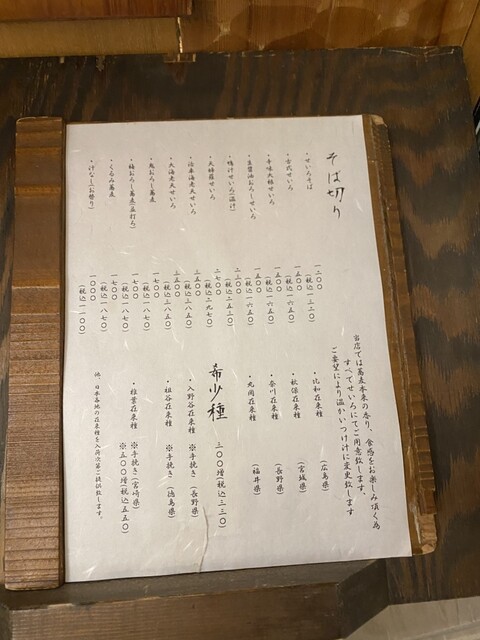 そば切り
・せいろそば 一二〇〇
(税込一三二〇)
・古代せいろ 一五〇〇
(税込一六五〇)
・辛味大根せいろ 一五〇〇
(税込一六五〇)
・生醤油おろしせいろ 一五〇〇
(税込一六五〇)
・鴨汁せいろ(温汁) 二三〇〇
(税込二五三〇)
・天婦羅せいろ 二七〇〇
(税込二九七〇)
・活車海老天せいろ 三五〇〇
(税込三八五〇)
・大海老天せいろ 三五〇〇
(税込三八五〇)
・鬼おろし蕎麦 一七〇〇
(税込一八七〇)
・梅おろし蕎麦 一七〇〇
(税込一八七〇)
・くるみ蕎麦 一七〇〇
(税込一八七〇)
・汁なし(お替り) 一〇〇〇
(税込一一〇〇)
当店では蕎麦本来の香り、食感をお楽しみ頂く為
すべてせいろにてご用意致します。
ご要望により温かいつけ汁に変更致します
・比和在来種 (広島県)
・秋保在来種 (宮城県)
・奈川在来種 (長野県)
・丸岡在来種 (福井県)
希少種 三〇〇増(税込三三〇)
・入野谷在来種 ※手挽き(長野県)
・祖谷在来種 ※手挽き(徳島県)
・椎葉在来種 ※手挽き(宮崎県)
※五〇〇増(税込五五〇)
他、日本各地の在来種を入荷次第ご提供致します。